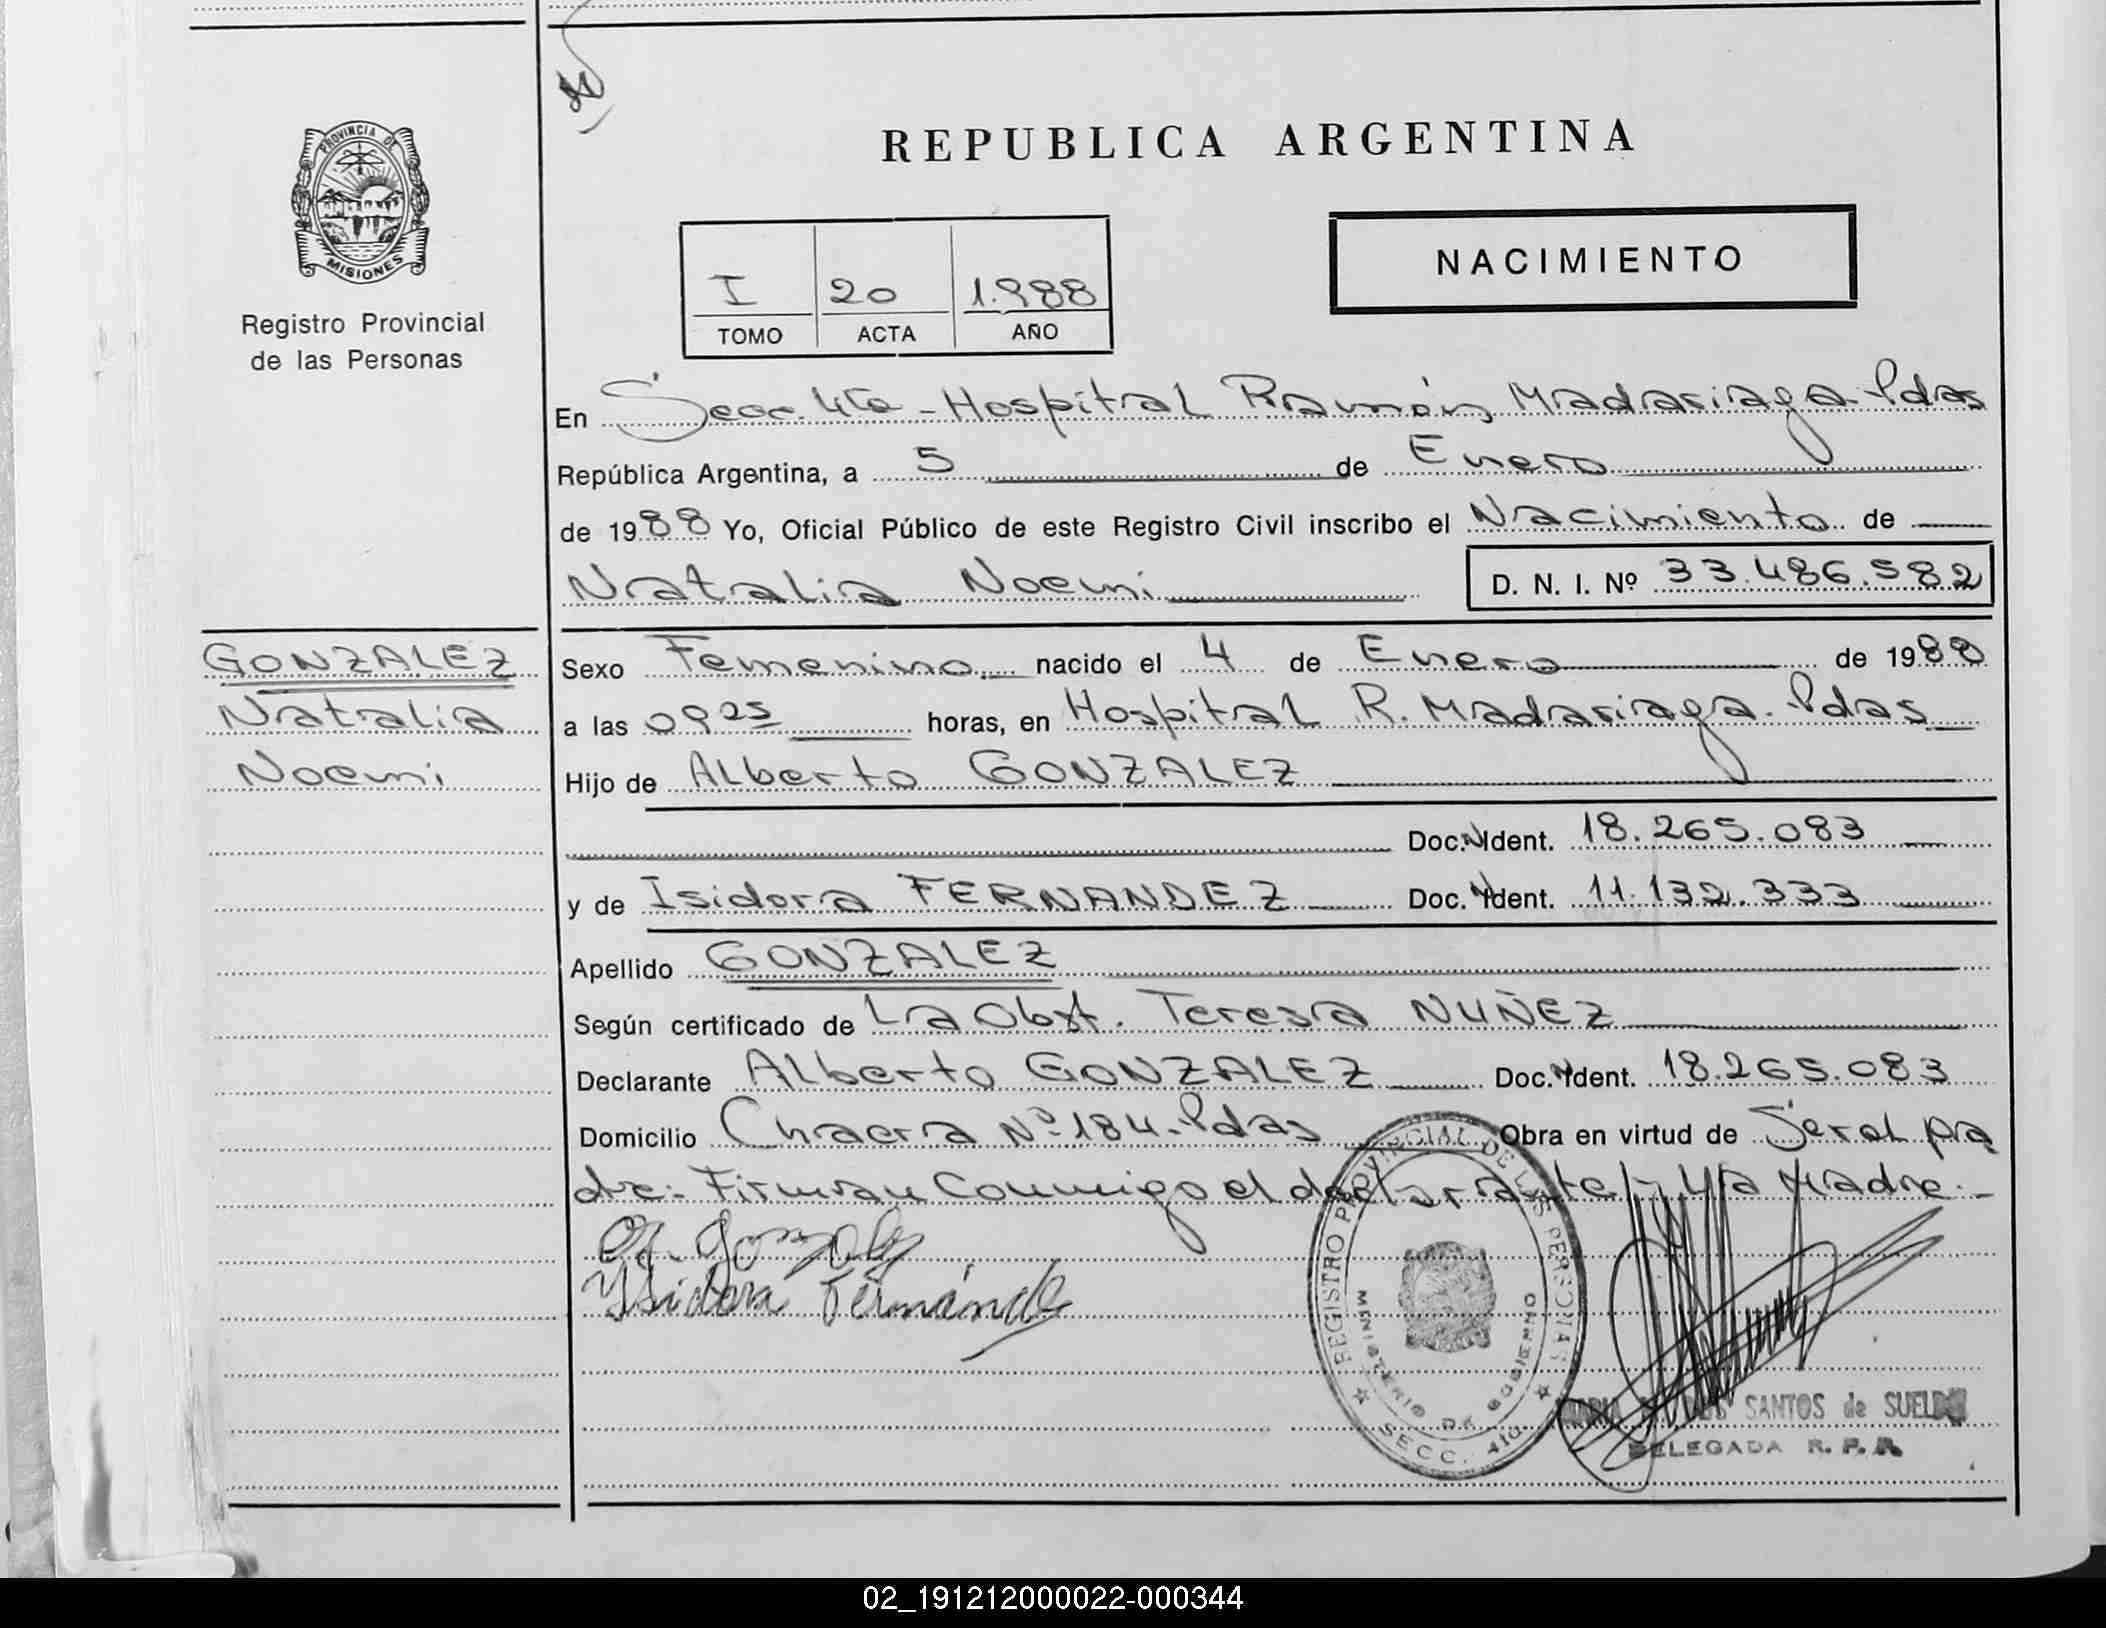 REPUBLICA ARGENTINA
PROVINCIA DE
MISIONES
Registro Provincial
de las Personas
NACIMIENTO
I 20 1.988
TOMO ACTA AÑO
En Secc. 4ta - Hospital Ramón Madariaga - Pdas
República Argentina, a 5 de Enero
de 1988 Yo, Oficial Público de este Registro Civil inscribo el Nacimiento de
Natalia Noemi D. N. I. Nº 33.486.582
GONZALEZ
Natalia
Noemi
Sexo Femenino nacido el 4 de Enero de 1988
a las 09 25 horas, en Hospital R. Madariaga. Pdas
Hijo de Alberto GONZALEZ
Doc. N Ident. 18.265.083
y de Isidora FERNANDEZ Doc. N Ident. 11.132.333
Apellido GONZALEZ
Según certificado de La Obst. Teresa NUÑEZ
Declarante Alberto GONZALEZ Doc. N Ident. 18.265.083
Domicilio Chacra Nº 184 - Pdas Obra en virtud de Ser el pa
dre - Firman Conmigo el declarante y la Madre. -
Gonzalez
Ysidora Fernández
REGISTRO PROVINCIAL DE LAS PERSONAS
MINISTERIO DE GOBIERNO
SECC. 4ta
MARIA DOS SANTOS de SUELDO
DELEGADA R. P. P.
02_191212000022-000344